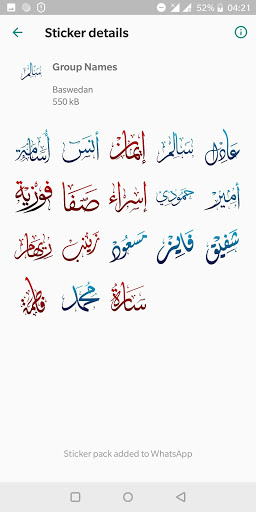 52% 04:21
Sticker details
Group Names
سالم
Baswedan
550 kB
عادل سالم إيمان أنس أسامة
أمير حمودي إسراء صفا فوزية
شفيق فايز مسعود زينب ريهام
سارة محمد فاطمة
Sticker pack added to WhatsApp